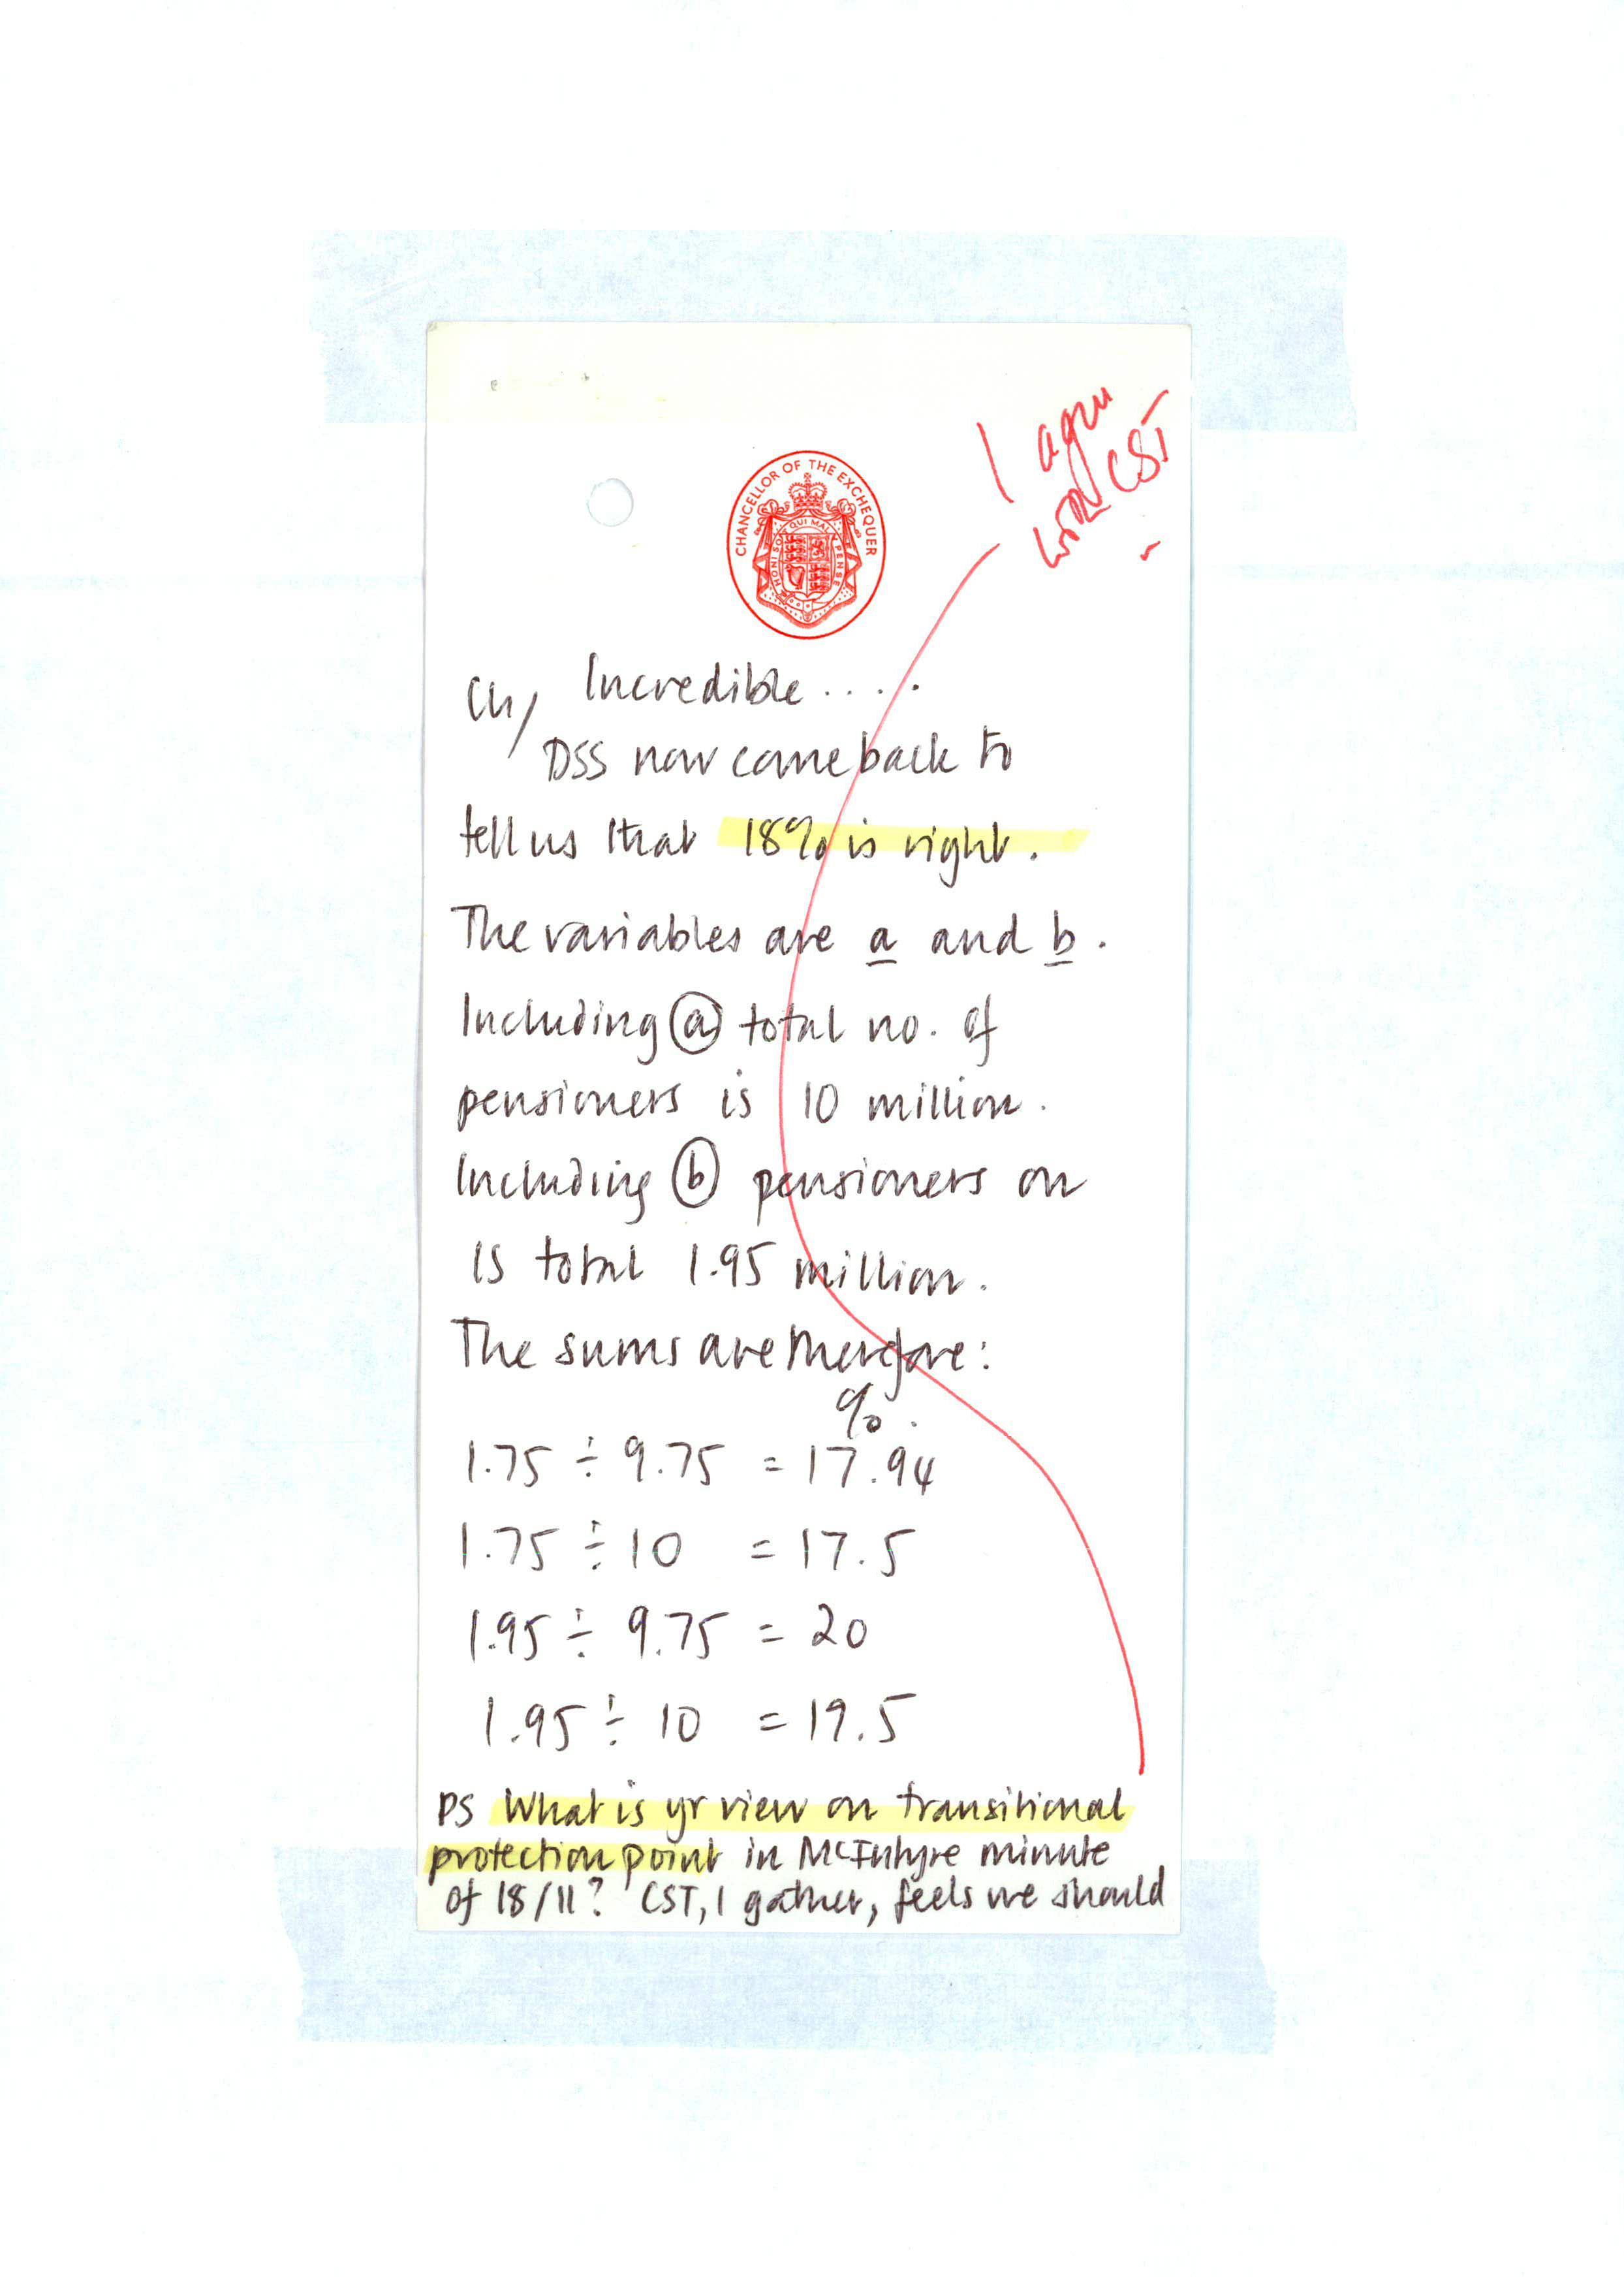 I agree
with CST
CHANCELLOR OF THE EXCHEQUER
HONI SOIT QUI MAL Y PENSE
Ch/ Incredible .....
DSS now come back to
tell us that 18% is right.
The variables are a and b.
Including (a) total no. of
pensioners is 10 million.
Including (b) pensioners on
IS total 1.95 million.
The sums are therefore:
%.
1.75 ÷ 9.75 = 17.94
1.75 ÷ 10 = 17.5
1.95 ÷ 9.75 = 20
1.95 ÷ 10 = 19.5
PS What is yr view on transitional
protection point in McIntyre minute
of 18/11? CST, I gather, feels we should